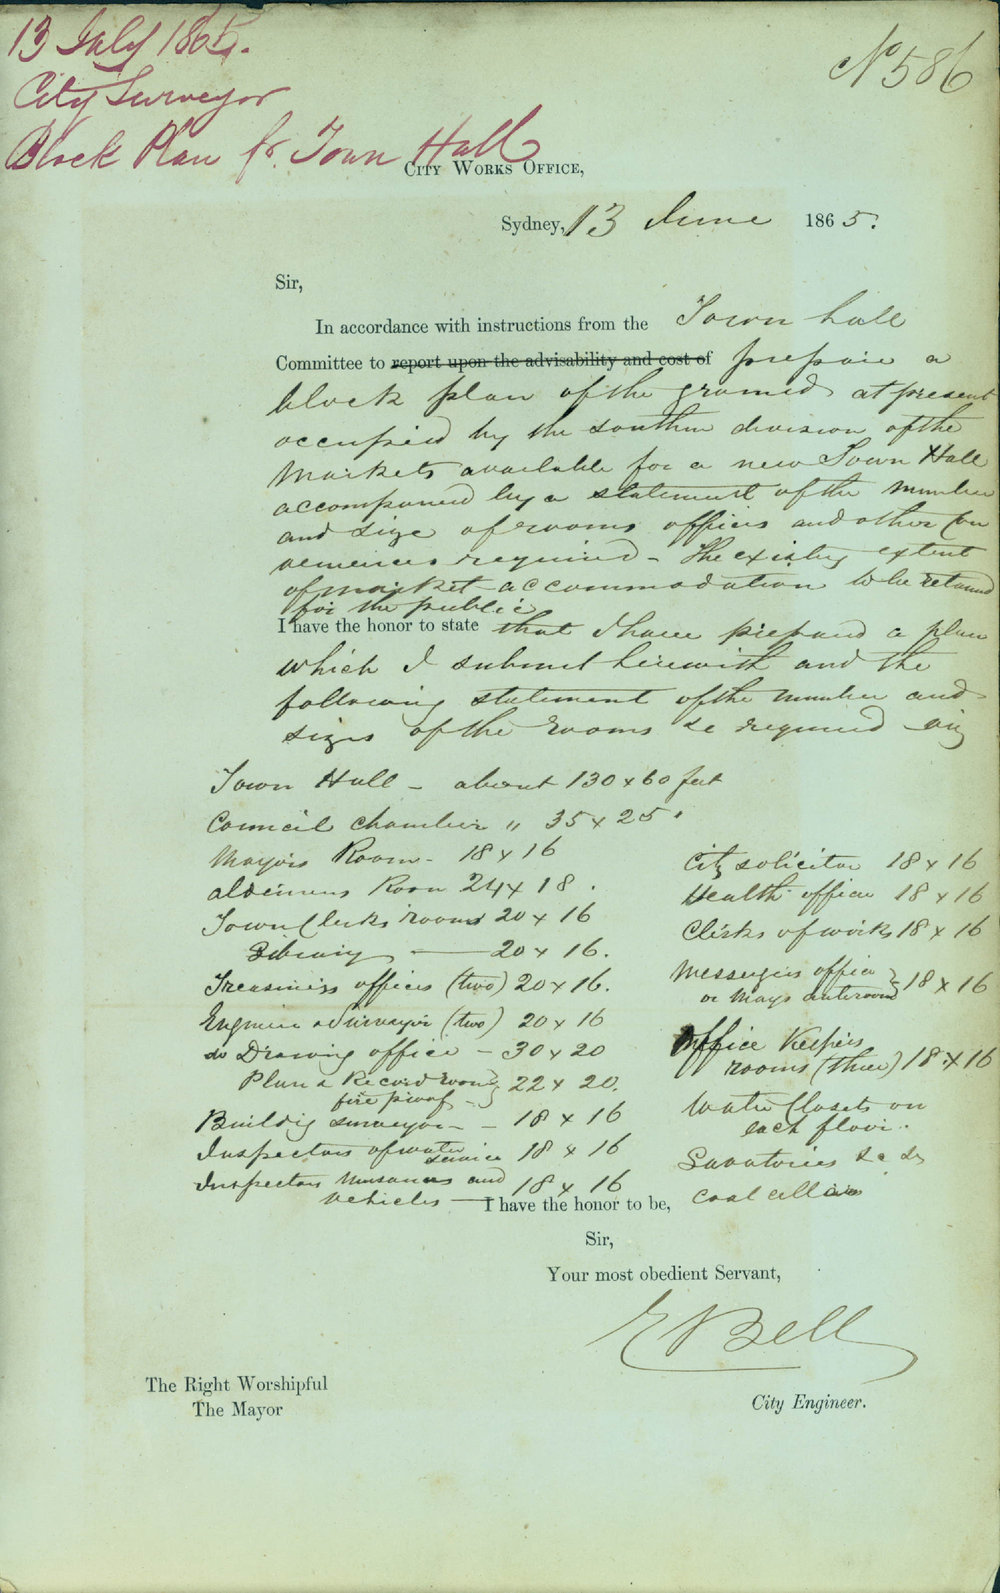 13 July 1865.
City Surveyor
Block Plan fr. Town Hall
No 586
CITY WORKS OFFICE,
Sydney, 13 June 1865.
Sir,
In accordance with instructions from the Town hall
Committee to report upon the advisability and cost of prepare a
block plan of the ground at present
occupied by the southern division of the
Markets available for a new Town Hall
accompanied by a statement of the number
and size of rooms offices and other con
veniences required - The existing extent
of market accommodation to be retained
for the public
I have the honor to state that I have prepared a plan
which I submit herewith and the
following statement of the number and
sizes of the rooms &c required viz
Town Hall - about 130 x 60 feet
Council chamber " 35 x 25 "
Mayors Room - 18 x 16
Aldermens Room 24 x 18.
Town Clerks rooms 20 x 16
Library — 20 x 16.
Treasurers offices (two) 20 x 16.
Engineer & Surveyor (two) 20 x 16
do Drawing office - 30 x 20
Plan & Record room } 22 x 20.
fire proof - }
Building surveyor - 18 x 16
Inspectors of water service 18 x 16
Inspectors Nuisances and
vehicles — 18 x 16
City solicitor 18 x 16
Health officer 18 x 16
Clerks of works 18 x 16
Messengers office } 18 x 16
or Mayrs anteroom }
Office Keepers
rooms (three) 18 x 16
Water Closets on
each floor.
Lavatories &c &c
Coal cellar
I have the honor to be,
Sir,
Your most obedient Servant,
E Bell
City Engineer.
The Right Worshipful
The Mayor